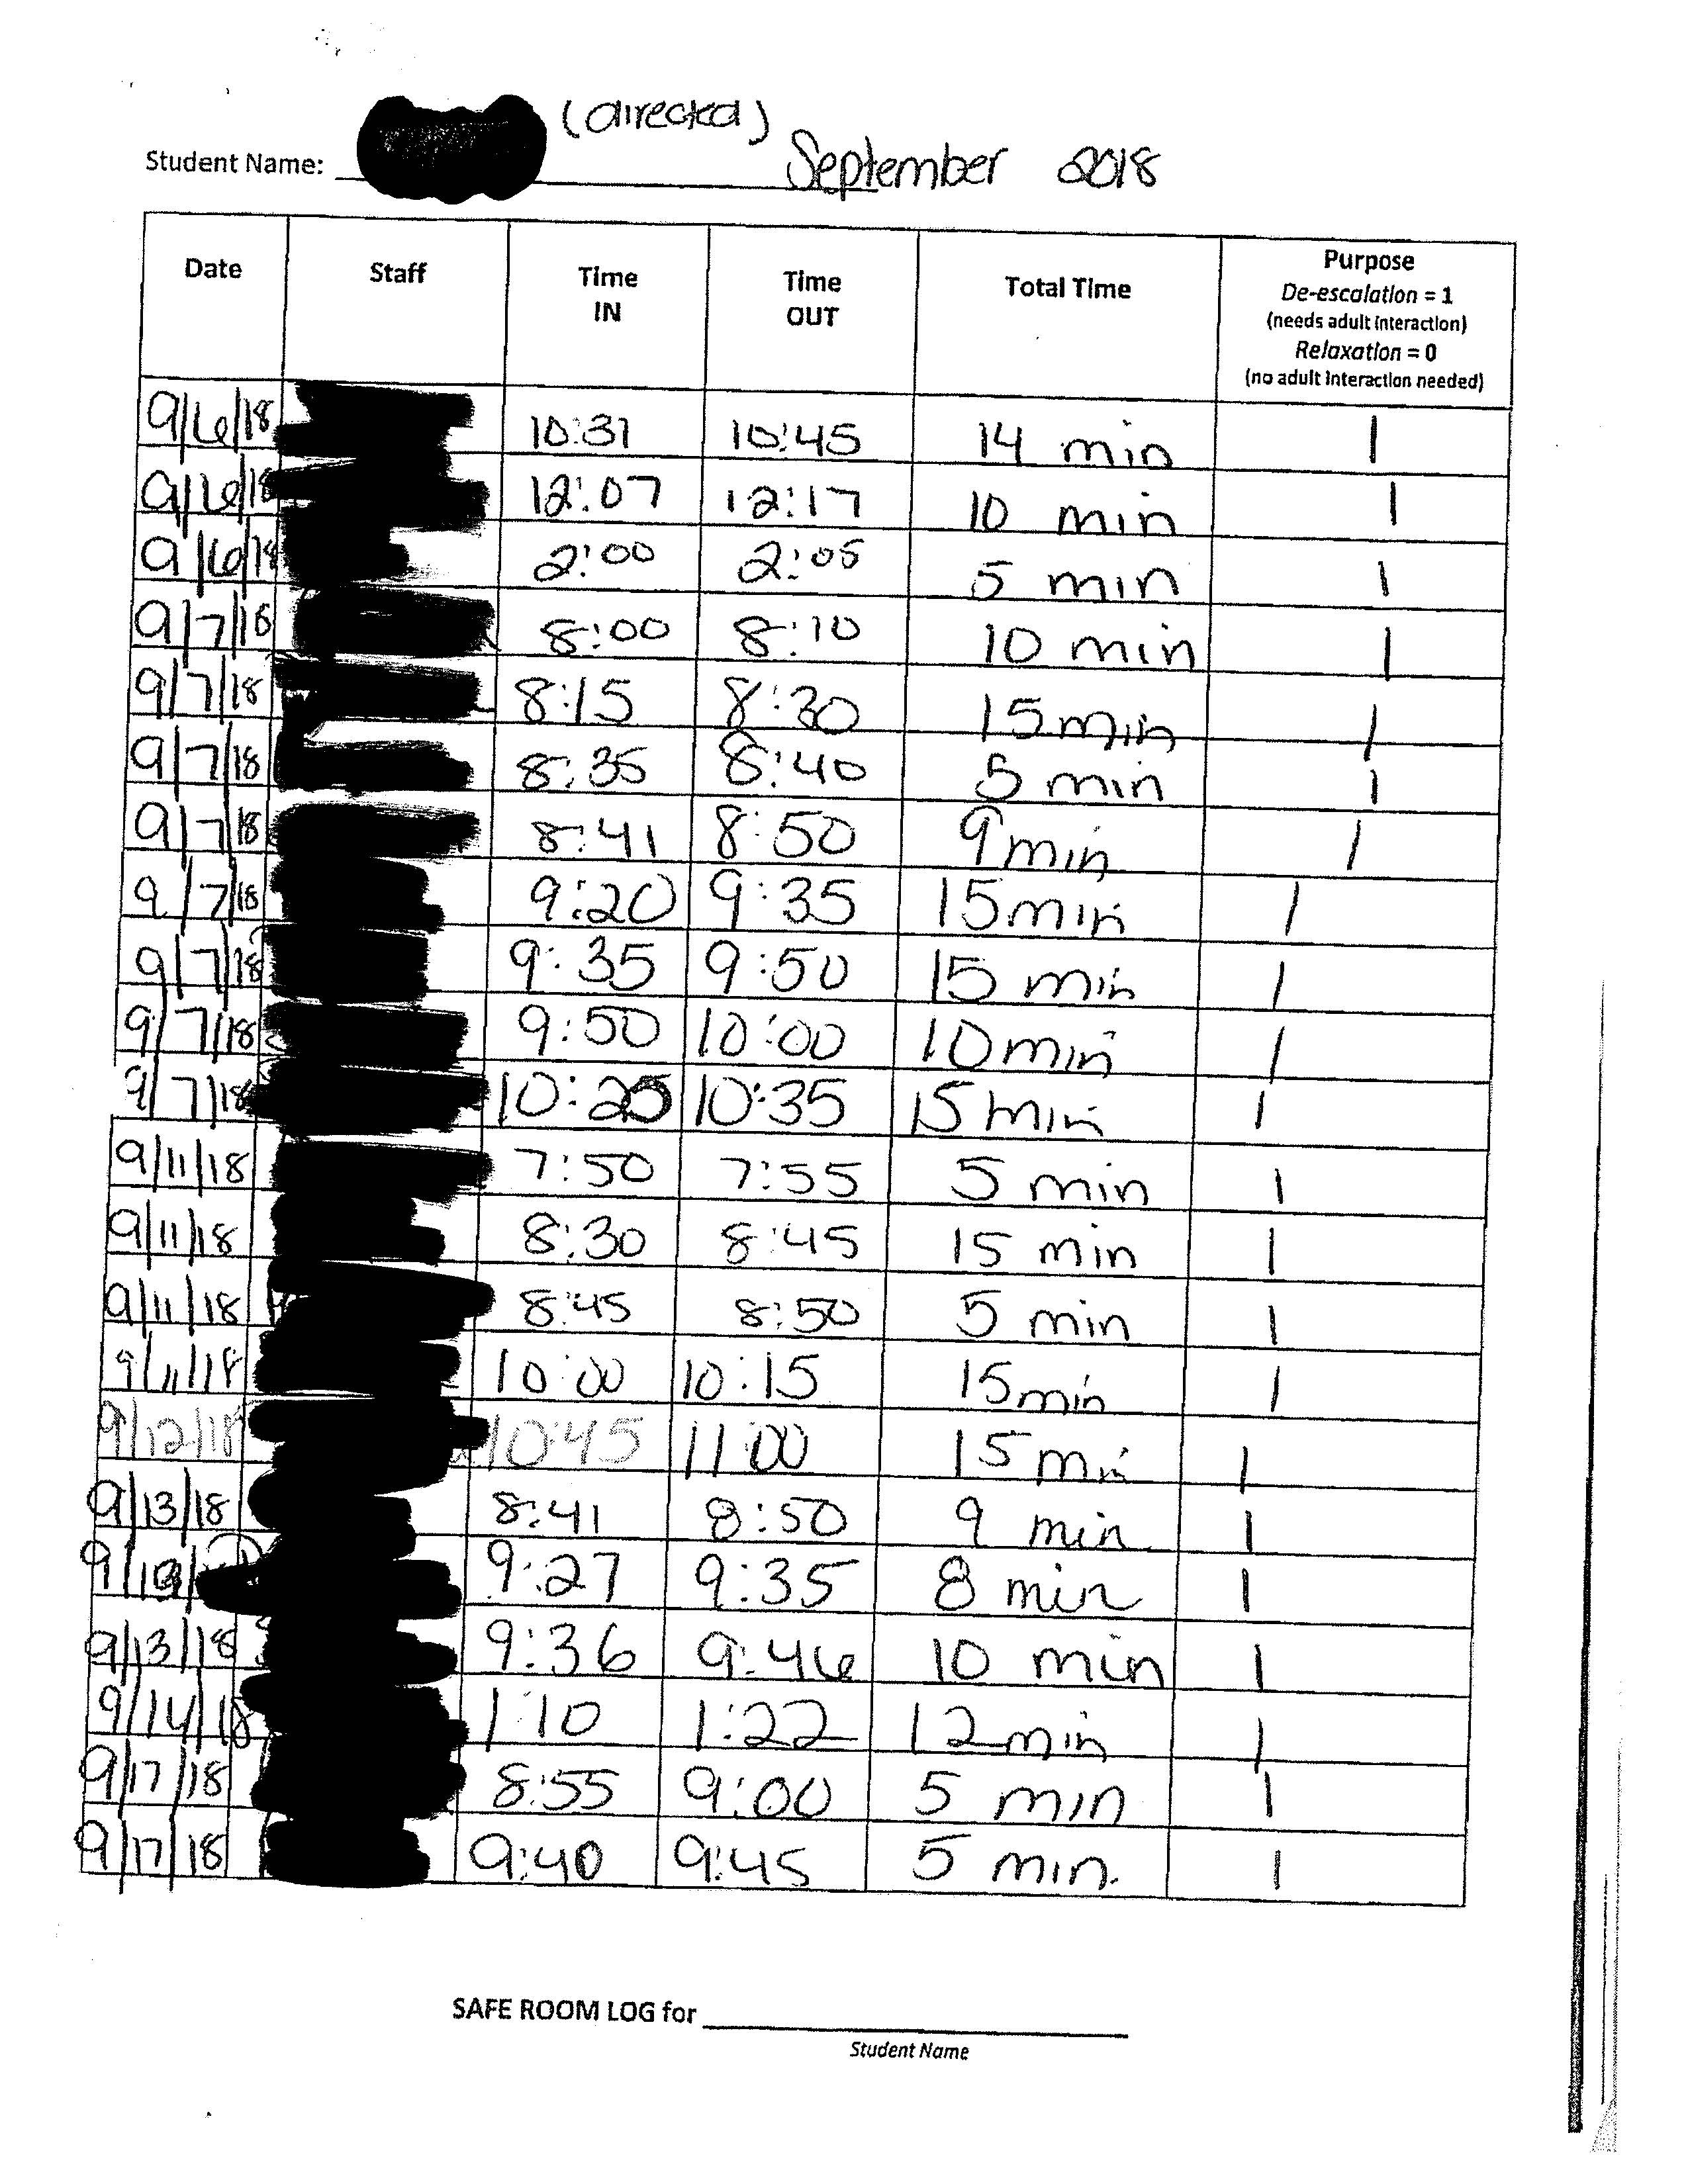 (directed)
Student Name: September 2018
Date Staff Time IN Time OUT Total Time Purpose
De-escalation = 1
(needs adult interaction)
Relaxation = 0
(no adult interaction needed)
9/6/18 10:31 10:45 14 min 1
9/6/18 12:07 12:17 10 min 1
9/6/18 2:00 2:05 5 min 1
9/7/18 8:00 8:10 10 min 1
9/7/18 8:15 8:30 15 min 1
9/7/18 8:35 8:40 5 min 1
9/7/18 8:41 8:50 9 min 1
9/7/18 9:20 9:35 15 min 1
9/7/18 9:35 9:50 15 min 1
9/7/18 9:50 10:00 10 min 1
9/7/18 10:35 15 min 1
9/11/18 7:50 7:55 5 min 1
9/11/18 8:30 8:45 15 min 1
9/11/18 8:45 8:50 5 min 1
9/11/18 10:00 10:15 15 min 1
9/12/18 10:45 11:00 15 min 1
9/13/18 8:41 8:50 9 min 1
9/13/ 9:27 9:35 8 min 1
9/13/18 9:36 9:46 10 min 1
9/14/18 1:10 1:22 12 min 1
9/17/18 8:55 9:00 5 min 1
9/17/18 9:40 9:45 5 min. 1
SAFE ROOM LOG for
Student Name